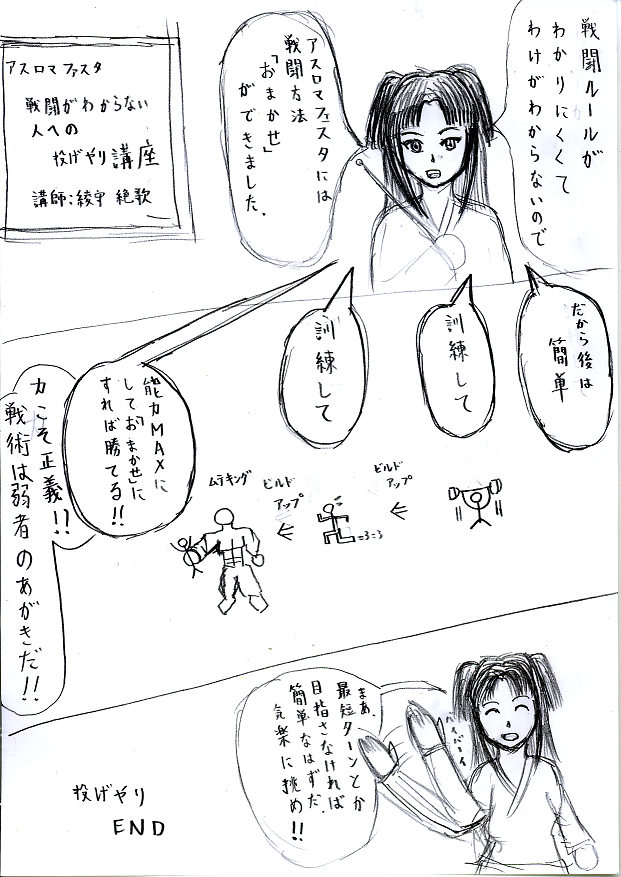 アスロマファスタ
戦闘がわからない
人への
投げやり講座
講師:綾守 絶歌
戦闘ルールが
わかりにくくて
わけがわからないので
アスロマフェスタには
戦闘方法
「おまかせ」
ができました。
だから後は
簡単
訓練して
訓練して
能力MAXに
して「おまかせ」に
すれば勝てる!!
力こそ正義!!
戦術は弱者のあがきだ!!
ビルド
アップ
ビルド
アップ
ムラキング
まあ、
最短ターンとか
目指さなければ
簡単なはずだ。
気楽に挑め!!
バイバーイ
投げやり
END